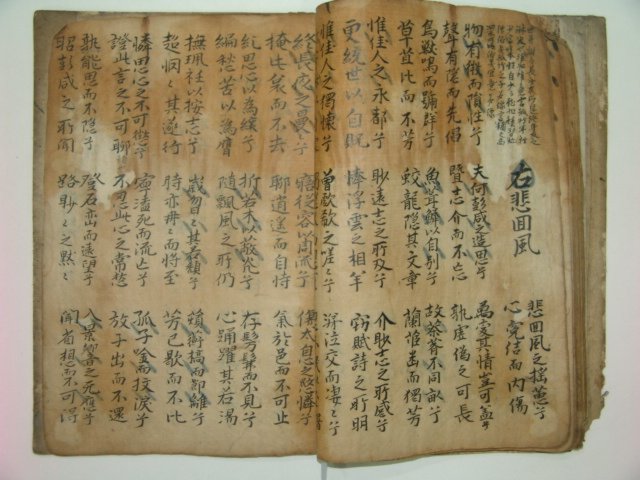 右悲回風
悲回風之搖蕙兮
心寃結而內傷
物有微而隕性兮
聲有隱而先倡
夫何彭咸之造思兮
曁志介而不忘
萬變其情豈可盖兮
孰虛偽之可長
鳥獸鳴而號群兮
草苴比而不芳
魚葺鱗以自別兮
蛟龍隱其文章
故荼薺不同畝兮
蘭茝幽而獨芳
惟佳人之永都兮
更統世以自貺
眇遠志之所及兮
憐浮雲之相羊
介眇志之所惑兮
竊賦詩之所明
惟佳人之獨懷兮
曾歔欷之嗟〻兮
涕泣交而凄〻兮
終長夜之曼〻兮
掩此哀而不去
寤從容以周流兮
聊逍遥而自恃
傷太息之愍憐兮
氣於邑而不可止
糺思心以為纕兮
編愁苦以為膺
折若木以蔽光兮
隨飄風之所仍
存髣髴而不見兮
心踊躍其若湯
撫珮衽以按志兮
超惘〻其遂行
歲曶〻其若頹兮
時亦冉〻而將至
薠蘅槁而節離兮
芳已歇而不比
憐思心之不可懲兮
證此言之不可聊
寧溘死而流亡兮
不忍此心之常愁
孤子唫而抆淚兮
放子出而不還
孰能思而不隱兮
昭彭咸之所聞
登石巒而遠望兮
路眇〻之默〻
入景響之无應兮
聞省想而不可得